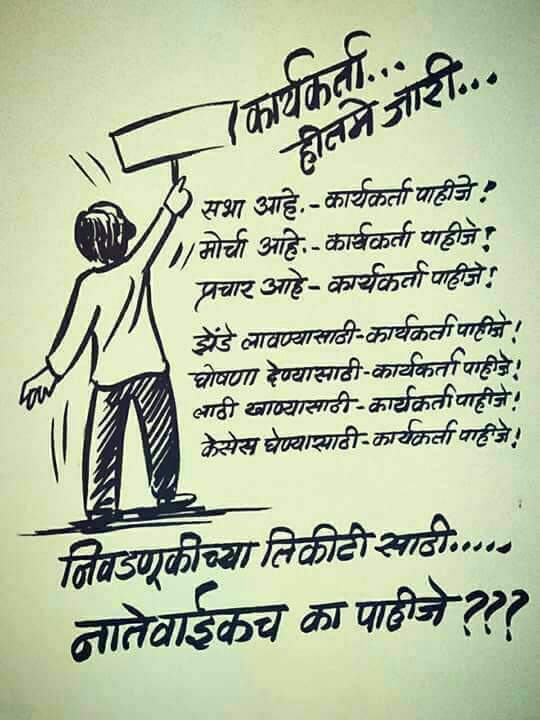 कार्यकर्ता...
हीतमे जारी...
सभा आहे.- कार्यकर्ता पाहीजे!
मोर्चा आहे.- कार्यकर्ता पाहीजे!
प्रचार आहे- कार्यकर्ता पाहीजे!
झेंडे लावण्यासाठी-कार्यकर्ता पाहीजे!
घोषणा देण्यासाठी-कार्यकर्ता पाहीजे!
लाठी खाण्यासाठी-कार्यकर्ता पाहीजे!
केसेस घेण्यासाठी-कार्यकर्ता पाहीजे!
निवडणूकीच्या तिकीटी साठी.....
नातेवाईकच का पाहीजे???